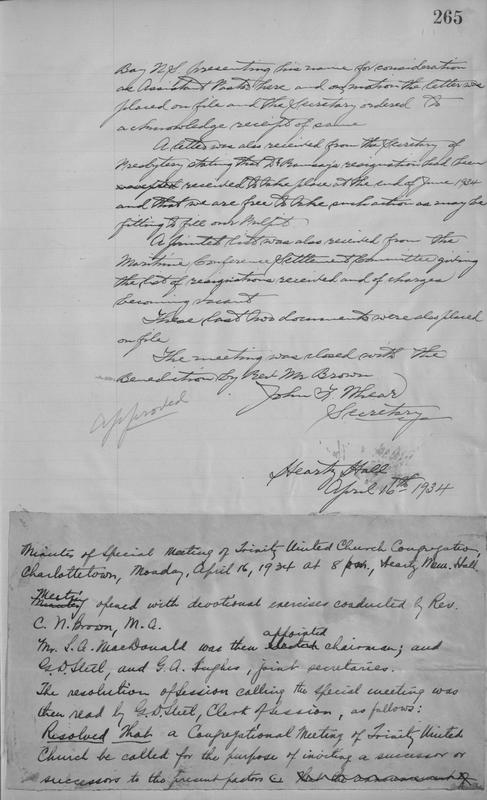 265
Bay N.S. presenting his name for consideration
as Assistant Pastor here and on motion the letter was
placed on file and the Secretary ordered to
acknowledge receipt of same
A letter was also received from the Secretary of
Presbytery stating that Dr Ramsay's resignation had been
accepted received to take place at the end of June 1934
and that we are free to take such action as may be
fitting to fill our Pulpit
A printed list was also received from the
Maritime Conference Settlement Committee giving
the list of resignations received and of charges
becoming vacant
These last two documents were also placed
on file
The meeting was closed with the
Benediction by Rev Mr Brown
John F. Whear
Secretary
approved
Hearty Hall
April 16th 1934
Minutes of Special Meeting of Trinity United Church Congregation,
Charlottetown, Monday, April 16, 1934 at 8 p.m., Hearty Mem. Hall.
Meeting
opened with devotional exercises conducted by Rev.
C. N. Brown, M.A.
appointed
Mr. L.A. MacDonald was then elected chairman; and
Geo. D. Steel, and G.A. Inghis, joint secretaries.
The resolution of Session calling the special meeting was
then read by Geo. D. Steel, Clerk of Session, as follows:
Resolved That a Congregational Meeting of Trinity United
Church be called for the purpose of inviting a successor or
successors to the present pastor